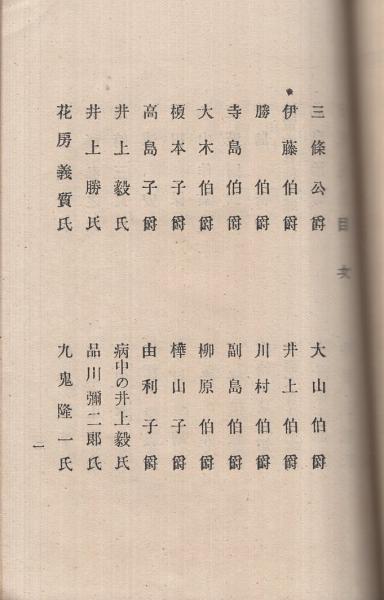 三條公爵
伊藤伯爵
勝伯爵
寺島伯爵
大木伯爵
榎本子爵
高島子爵
井上毅氏
井上勝氏
花房義質氏
大山伯爵
井上伯爵
川村伯爵
副島伯爵
柳原伯爵
樺山子爵
由利子爵
病中の井上毅氏
品川彌二郎氏
九鬼隆一氏
一